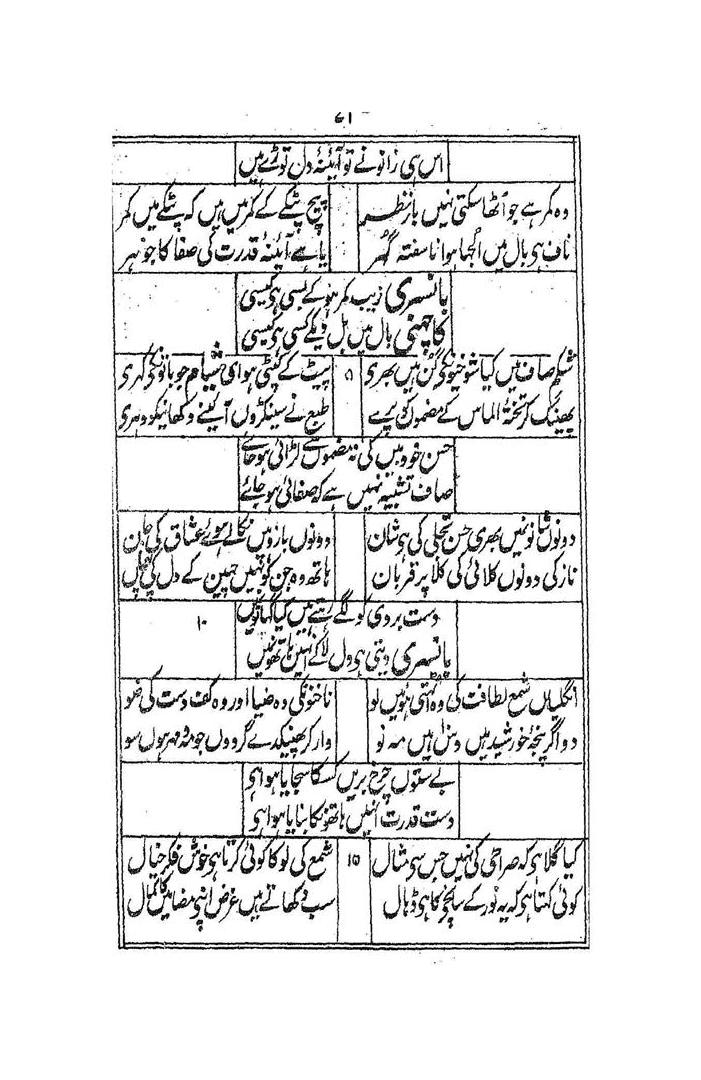 ۶۱
اس ہی زانو نے تو آئینۂ دل توڑے ہیں
وہ کمر ہے جو اٹھا سکتی نہیں بار نظر
پیچ پٹکے کے کمر میں ہیں کہ پٹکے میں کمر
ناف ہی بال میں الجھا ہوا ناسفتہ گہر
یا ہے آئینۂ قدرت کی صفا کا جوہر
بانسری زیب کمر ہو کے بسی ہی کیسی
کاچھنی بال میں بل دیکے کسی ہی کیسی
شکم صاف میں کیا شوخیونکی گن ہیں بھری
۵
پیٹ کے کپٹی ہوای شیام جو باتونکی کہری
پھینک کر تختۂ الماس کے مضموں کو پرے
طبع نے سینکڑوں آئینے دکھانیکو دہری
حسن خود بیں کی نہ مضموں سے لڑائی ہو جائے
صاف تشبیہ نہیں ہے کہ صفائی ہو جائے
دونوں شانونمیں بھری حسن تجلی کی ہی شان
دونوں بازو ہیں نکالے ہوئے عشاق کی جان
ناز کی دونوں کلائی کی کلا پر قربان
ہاتھ وہ جن کو نہیں چین کے دل کی
دست بردی کو لگے رہتے ہیں کیا گہاتوں میں
۱۰
بانسری دیتی ہی دل لا کے انہیں ہاتھوں میں
انگلیاں شمع لطافت کی وہ اٹھتی ہوئیں لو
ناخنونکی وہ ضیا اور وہ کف دست کی ضو
دو اگر پنجۂ خورشید ہیں دس ہیں مہ نو
وار کر پھینکدے گردوں جو مہ و مہر ہوں سو
بے ستوں چرخ بریں کسکا سجایا ہوا ہی
دست قدرت انہیں ہاتھونکا بنایا ہوا ہی
کیا گلا ہی کہ صراحی کی نہیں جس سی مثال
۱۵
شمع کی لو کا کوئی کرتا ہی خوش فکر خیال
کوئی کہتا ہی کہ یہ نور کے سانچی کا ہی ڈہال
سب دکھاتے ہیں غرض اپنی مضامیں کا کمال